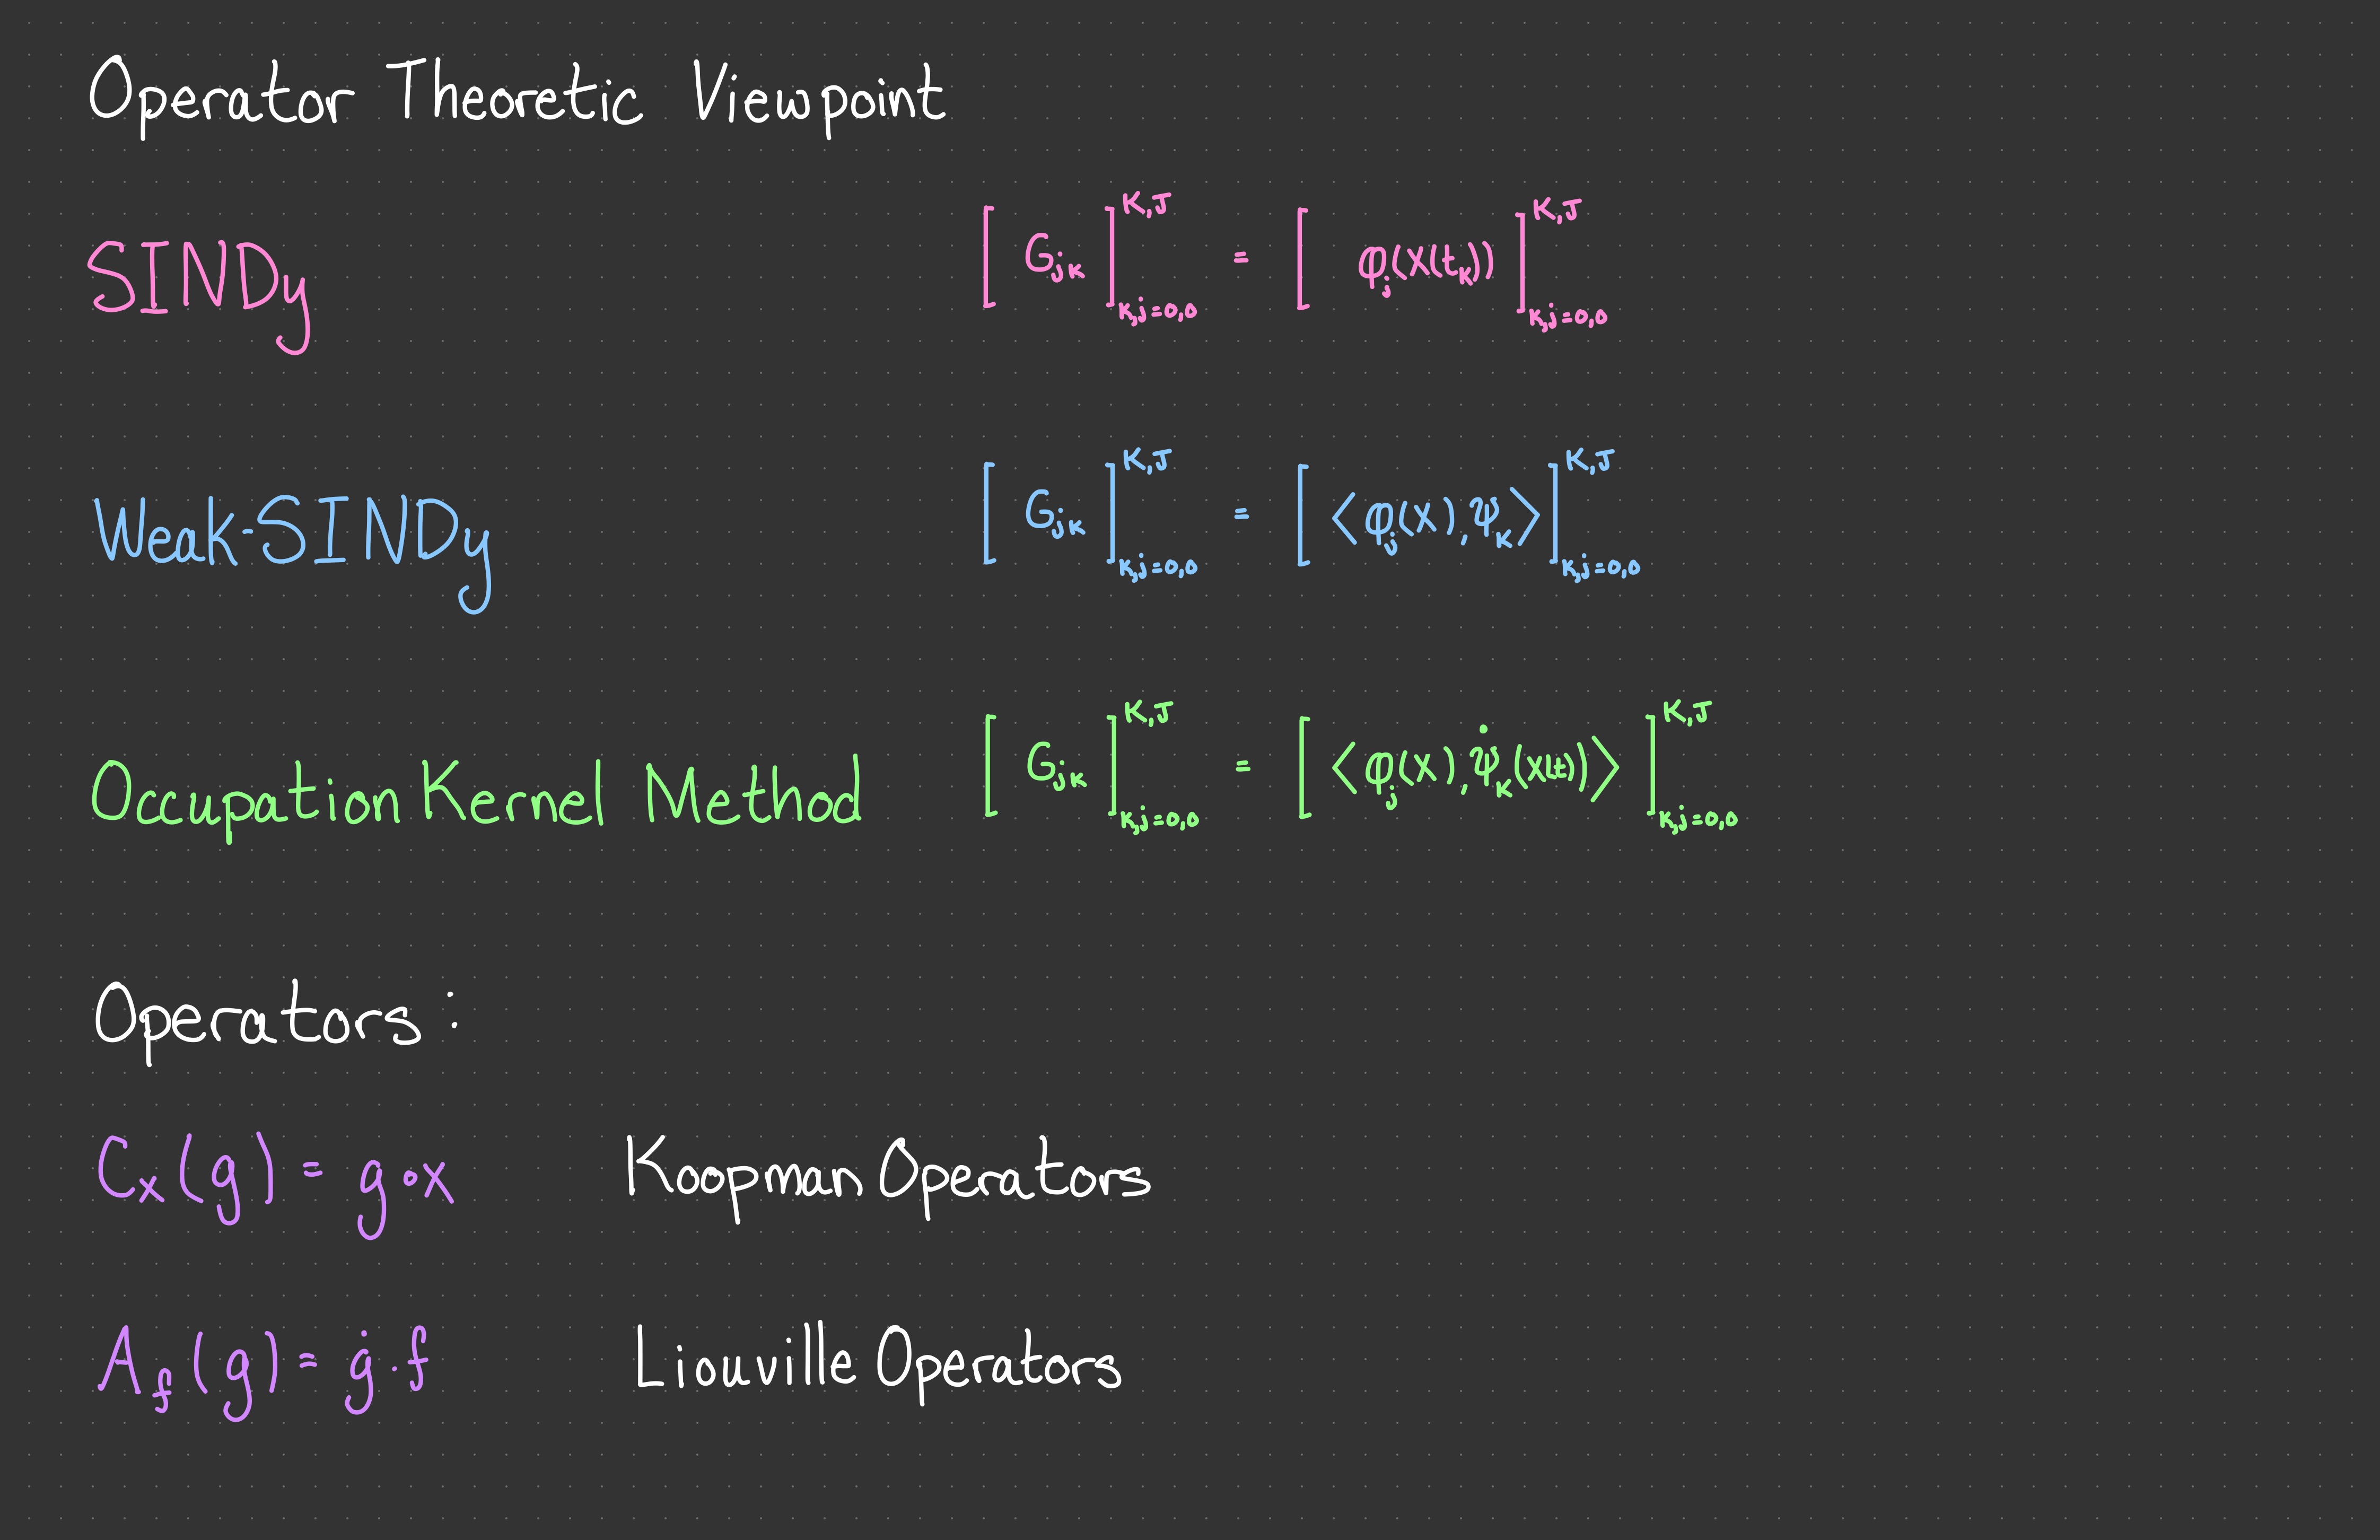 Operator Theoretic Viewpoint
SINDy [G_jk]^{K,J}_{k,j=0,0} = [φ_j(x(t_k))]^{K,J}_{k,j=0,0}
Weak-SINDy [G_jk]^{K,J}_{k,j=0,0} = [<φ_j(x), ψ_k>]^{K,J}_{k,j=0,0}
Occupation Kernel Method [G_jk]^{K,J}_{k,j=0,0} = [<φ_j(x), ψ̇_k(x(t))>]^{K,J}_{k,j=0,0}
Operators:
C_x(g) = g∘x Koopman Operators
A_f(g) = ġ·f Liouville Operators